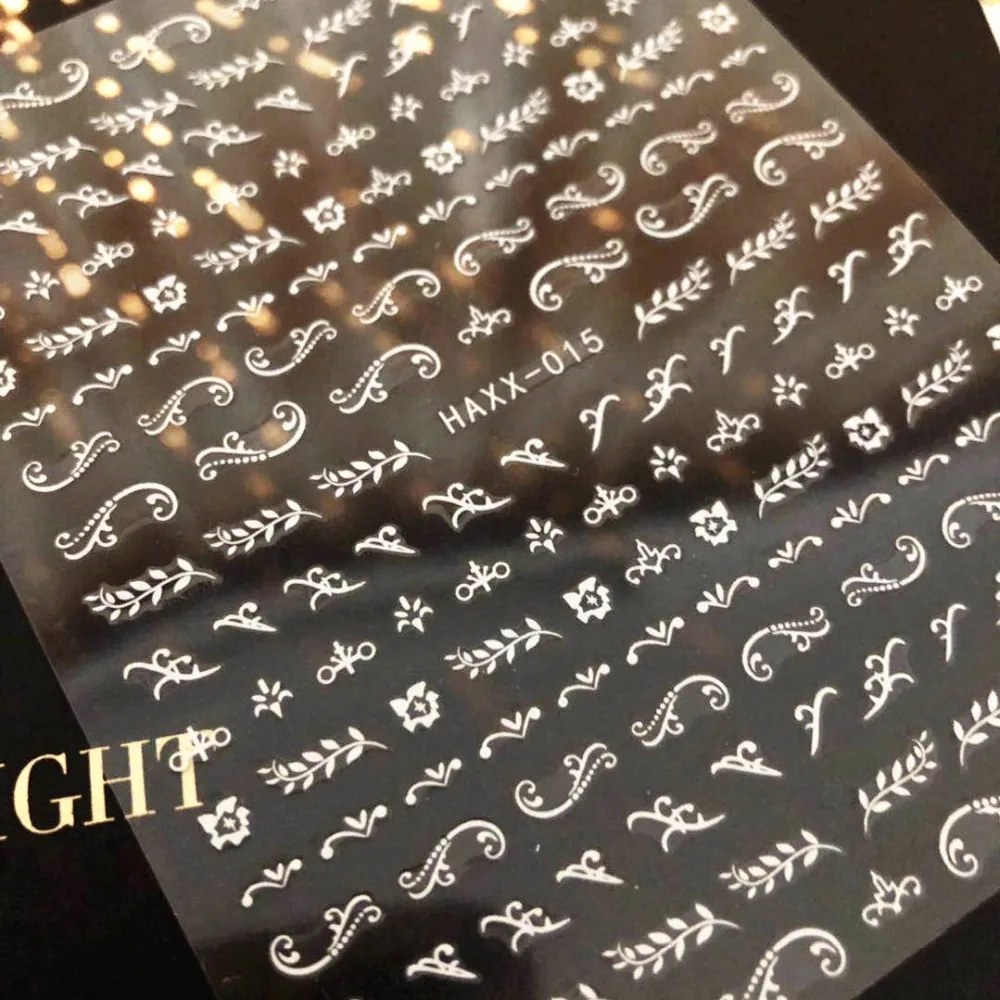 HAXX-015
GHT